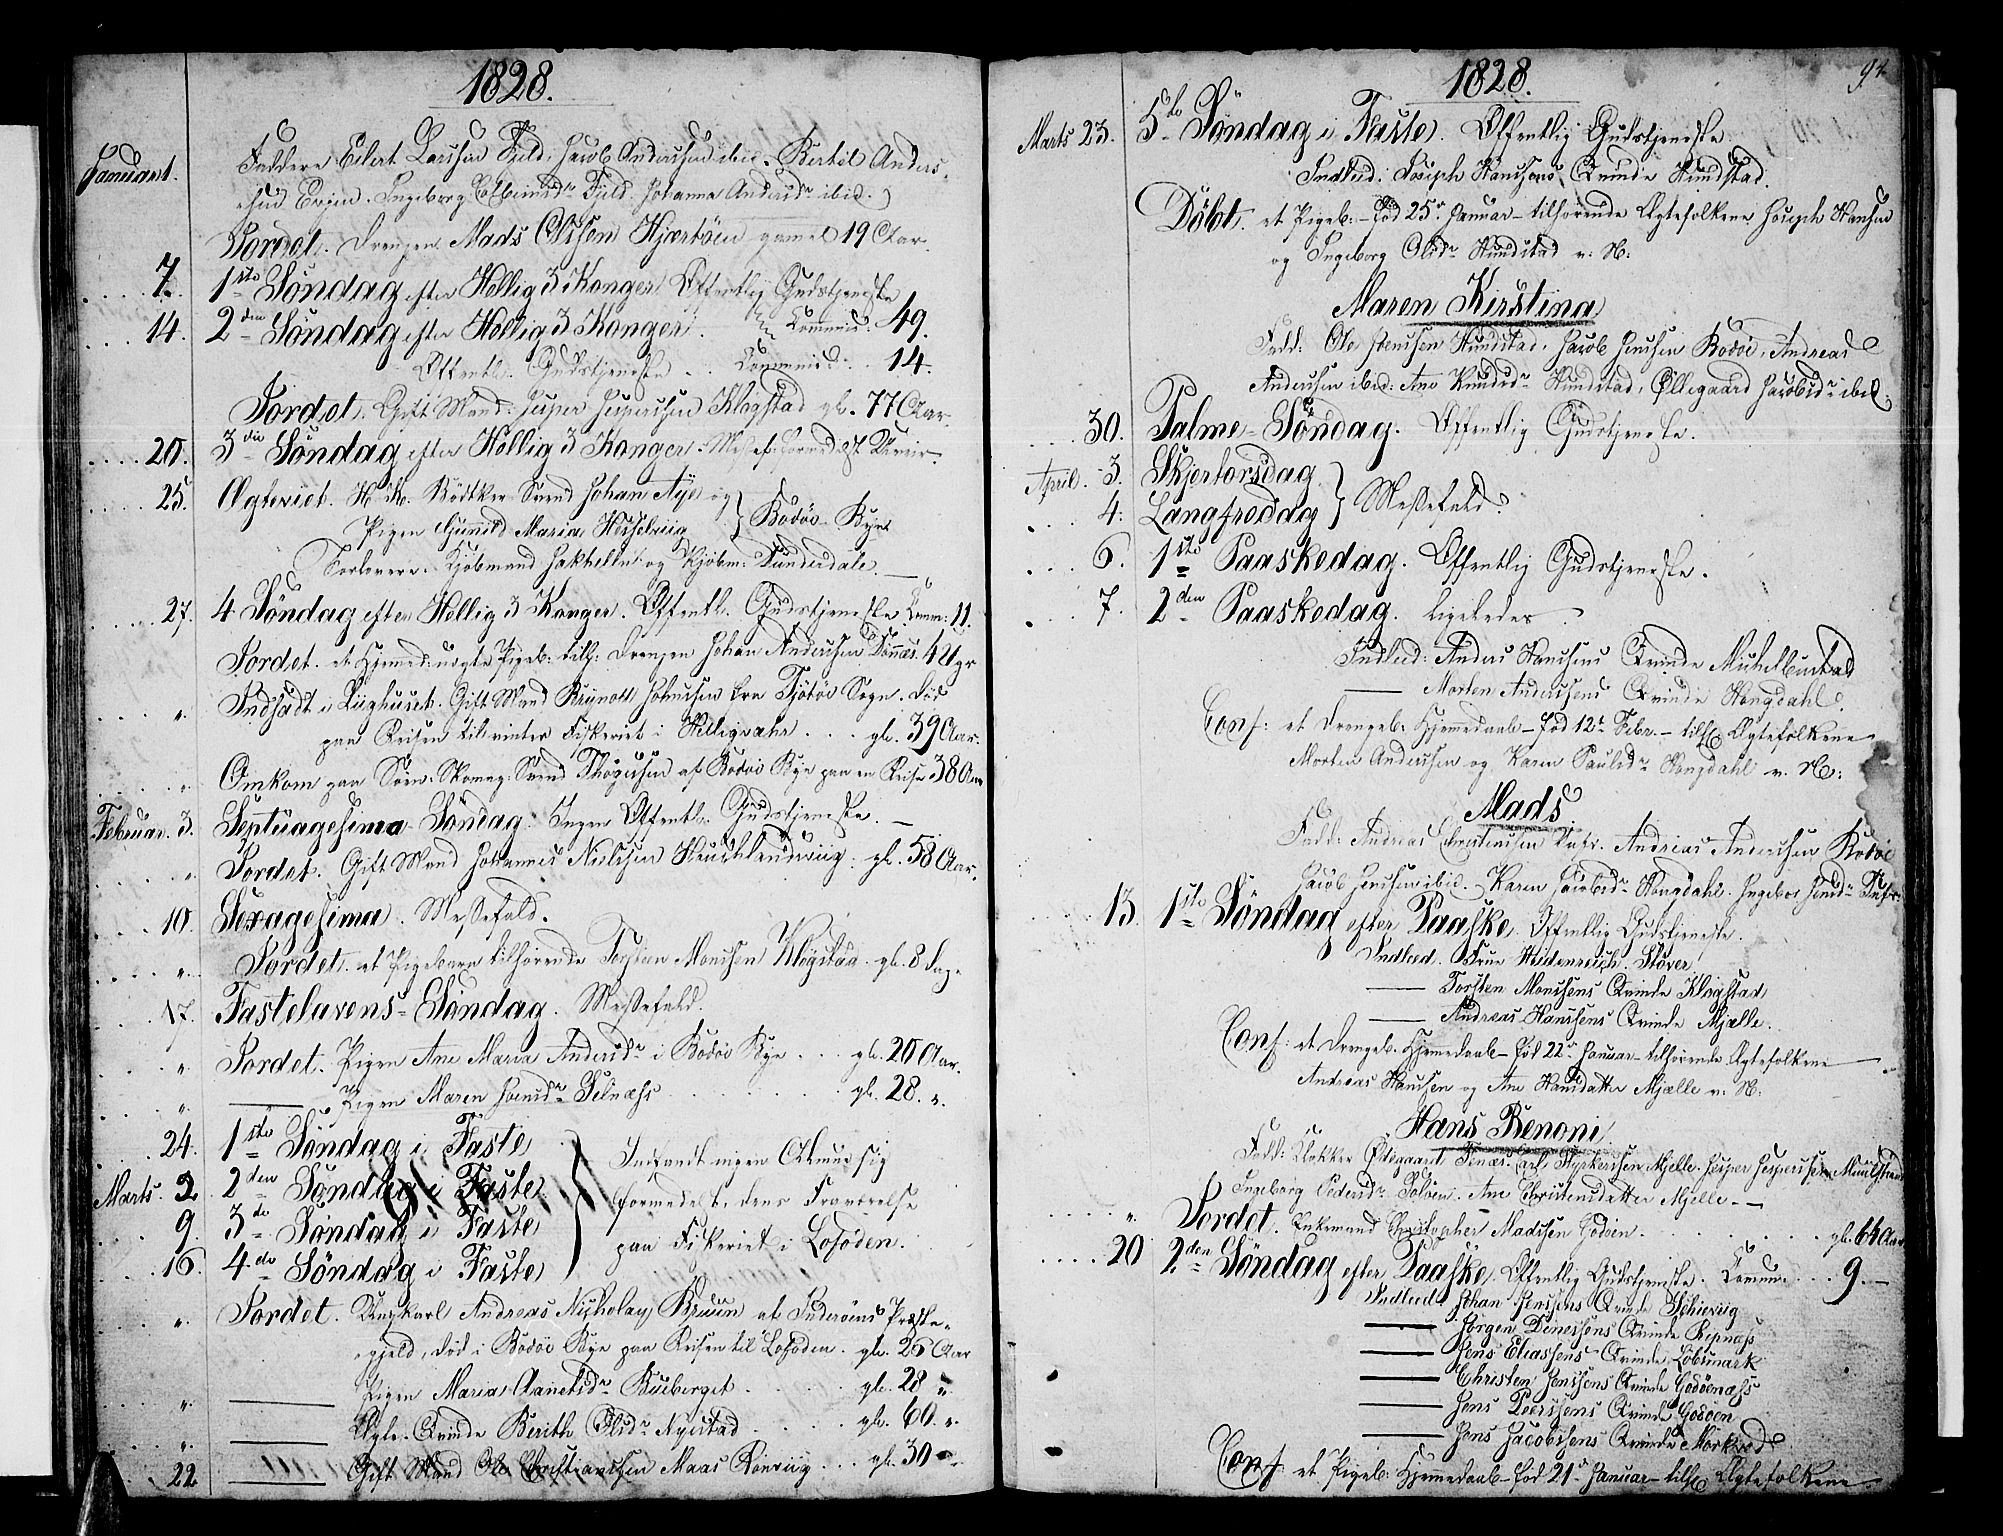 1828.
Januar.
Faddere Eilert Larssen Fjeld, Jacob Anderssen ibid. Bertel Anders-
sen Evjen. Ingeborg Fjeld. Johanna Andersdr ibid.
Jordet. Drengen Mads Olssen Hjertøen gamel 19 Aar.
7. 1ste Søndag efter Hellig 3 Konger Offentlig Gudstjeneste
14. 2den Søndag efter Hellig 3 Konger. Commnic: 49.
Offentl. Gudstjeneste. Communic: 14.
Jordet. Gift Mand: Jesper Jesperssen Klogstad gl. 77 Aar.
20. 3die Søndag efter Hellig 3 Konger. Messef. formedelst
25. Ægteviet. Bødtker Svend Johan Aye og
Pigen Gunnild Maria } Bodøe Bye
Forlovere. Kjøbmand Jakhelln og Kjøbm:
27. 4 Søndag efter Hellig 3 Konger. Offentl. Gudstjeneste Comm: 11.
Jordet. et hjemmed: uægte Pigeb: tilh: Drengen Johan Anderssen 4 Uger
" Indsadt i Liighuset. Gift Mand Brynild Johnssen fra Tjøtøe Sogn. død
paa Reisen til vinter Fiskeriet i Helligvær ... gl. 39 Aar.
" Omkom paa Søen: Skomag: Svend af Bodøe Bye paa en Reise 38 Aar
Februar. 3. Septuagesima Søndag. Ingen Offentl. Gudstjeneste. —
" Jordet. Gift Mand Johannes Nielssen gl. 58 Aar.
10. Sexagesima. Messefald.
" Jordet. et Pigebarn tilhørende Torsten Monssen Klogstad. gl. 8 Dage
17. Fastelavens-Søndag. Messefald.
" Jordet. Pigen Ane Maria Andersdr i Bodøe Bye ... gl. 20 Aar.
" —— Pigen Maren Jensdr Seines ... gl. 28. "
24. 1ste Søndag i Faste
Marts. 2. 2den Søndag i Faste
9. 3de Søndag i Faste
16. 4de Søndag i Faste
} Indfandt ingen Almue sig
formedelst dens Fraværelse
paa Fiskeriet i Lofoden.
" Jordet. Ungkarl Andreas Nicholay Bruun af Inderøens Præste-
gjeld, død i Bodøe Bye paa Reisen til Lofoden. gl. 26 Aar
" —— Pigen Maria gl. 28 "
" —— Ægte-Qvinde Berith Olsdr Nystad gl. 60. "
22 —— Gift Mand Ole Christianssen Maas gl. 30 "
1828.
94
Marts 23. 5te Søndag i Faste. Offentlig Gudstjeneste
Indled: Joseph Hanssens Qvinde Hundstad.
Døbt. et Pigeb: – fød 25de Januar – tilhørende Ægtefolkene Joseph Hanssen
og Ingeborg Olsdr Hundstad v: N:
Maren Kirstina
Fadd: Ole Jenssen Hundstad, Jacob Jenssen Bodøe, Andreas
Anderssen ibid: Ane Knudsdr Hundstad, Øllegaard Jacobsdr ibid.
30. Palme-Søndag. Offentlig Gudstjeneste.
April. 3. Skjertorsdag
4. Langfredag } Messefald.
6. 1ste Paaskedag. Offentlig Gudstjeneste.
7. 2den Paaskedag. ligeledes.
Indled: Anders Hanssens Qvinde
—— Morten Anderssens Qvinde Hougdahl.
Conf: et Drengeb: hjemmedøbt – fød 12te Febr. – tilh: Ægtefolkene
Morten Anderssen og Karen Paulsdr Hougdahl v. N:
Mads
Fadd: Andreas Christenssen Andreas Anderssen Bodøe
Jacob Jenssen ibid. Karen Jacobsdr Hougdahl. Ingebor Jensdr
13 1ste Søndag efter Paaske. Offentlig Gudstjeneste.
Indled. Frue Heidenreich. Støver
—— Torsten Monssens Qvinde Klogstad
—— Andreas Hanssens Qvinde Mjælle.
Conf: et Drengeb: hjemmedøbt – fød 22de Januar – tilhørende Ægtefolkene
Andreas Hanssen og Ane Hansdatter Mjælle v: N:
Hans Benoni
Fadd: Klokker Ødegaard Carl Styrkerssen Mjelle. Jesper Jesperssen
Ingeborg Pedersdr Ane Christensdatter Mjelle. —
" Jordet. Enkemand Christopher Madssen Godøen gl. 64 Aar
20 2den Søndag efter Paaske. Offentlig Gudstjeneste. Commun. ... 9. —
Indled: Johan Jenssens Qvinde
—— Jørgen Dinessens Qvinde Ripnæss
—— Jens Eliassens Qvinde Løbsmark
—— Christen Jenssens Qvinde Godøenæss
—— Jens Peerssens Qvinde Godøen
—— Jens Jacobssens Qvinde Mørkved
Conf: et Pigeb: hjemmedøbt – fød 21de Januar – tilh: Ægtefolkene